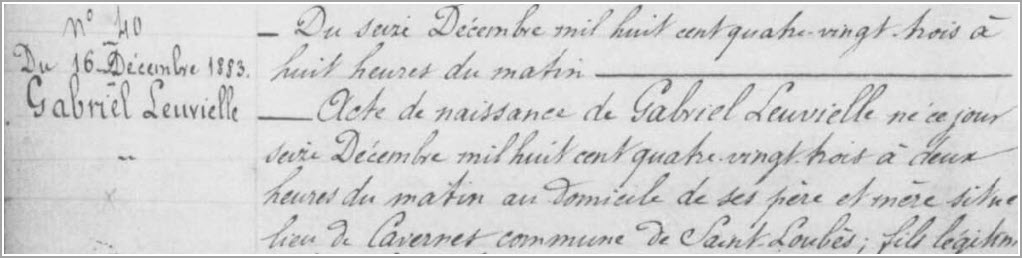 N° 40
Du 16 Décembre 1883.
Gabriel Leuvielle
— Du seize Décembre mil huit cent quatre-vingt-trois à
huit heures du matin —
— Acte de naissance de Gabriel Leuvielle né ce jour
seize Décembre mil huit cent quatre-vingt-trois à deux
heures du matin au domicile de ses père et mère situé
lieu de Cavernes commune de Saint-Loubès; fils légitim